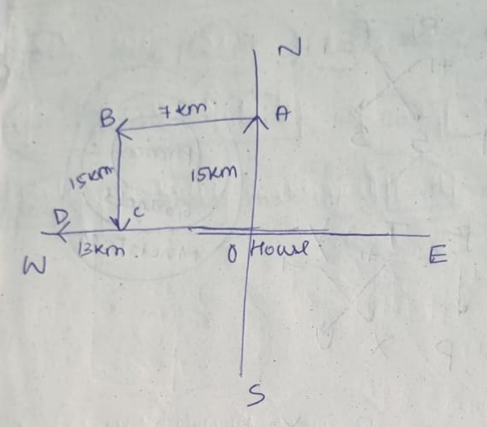 N
7 km.
B
A
15km
15km
D
C
13km.
O House
W
E
S